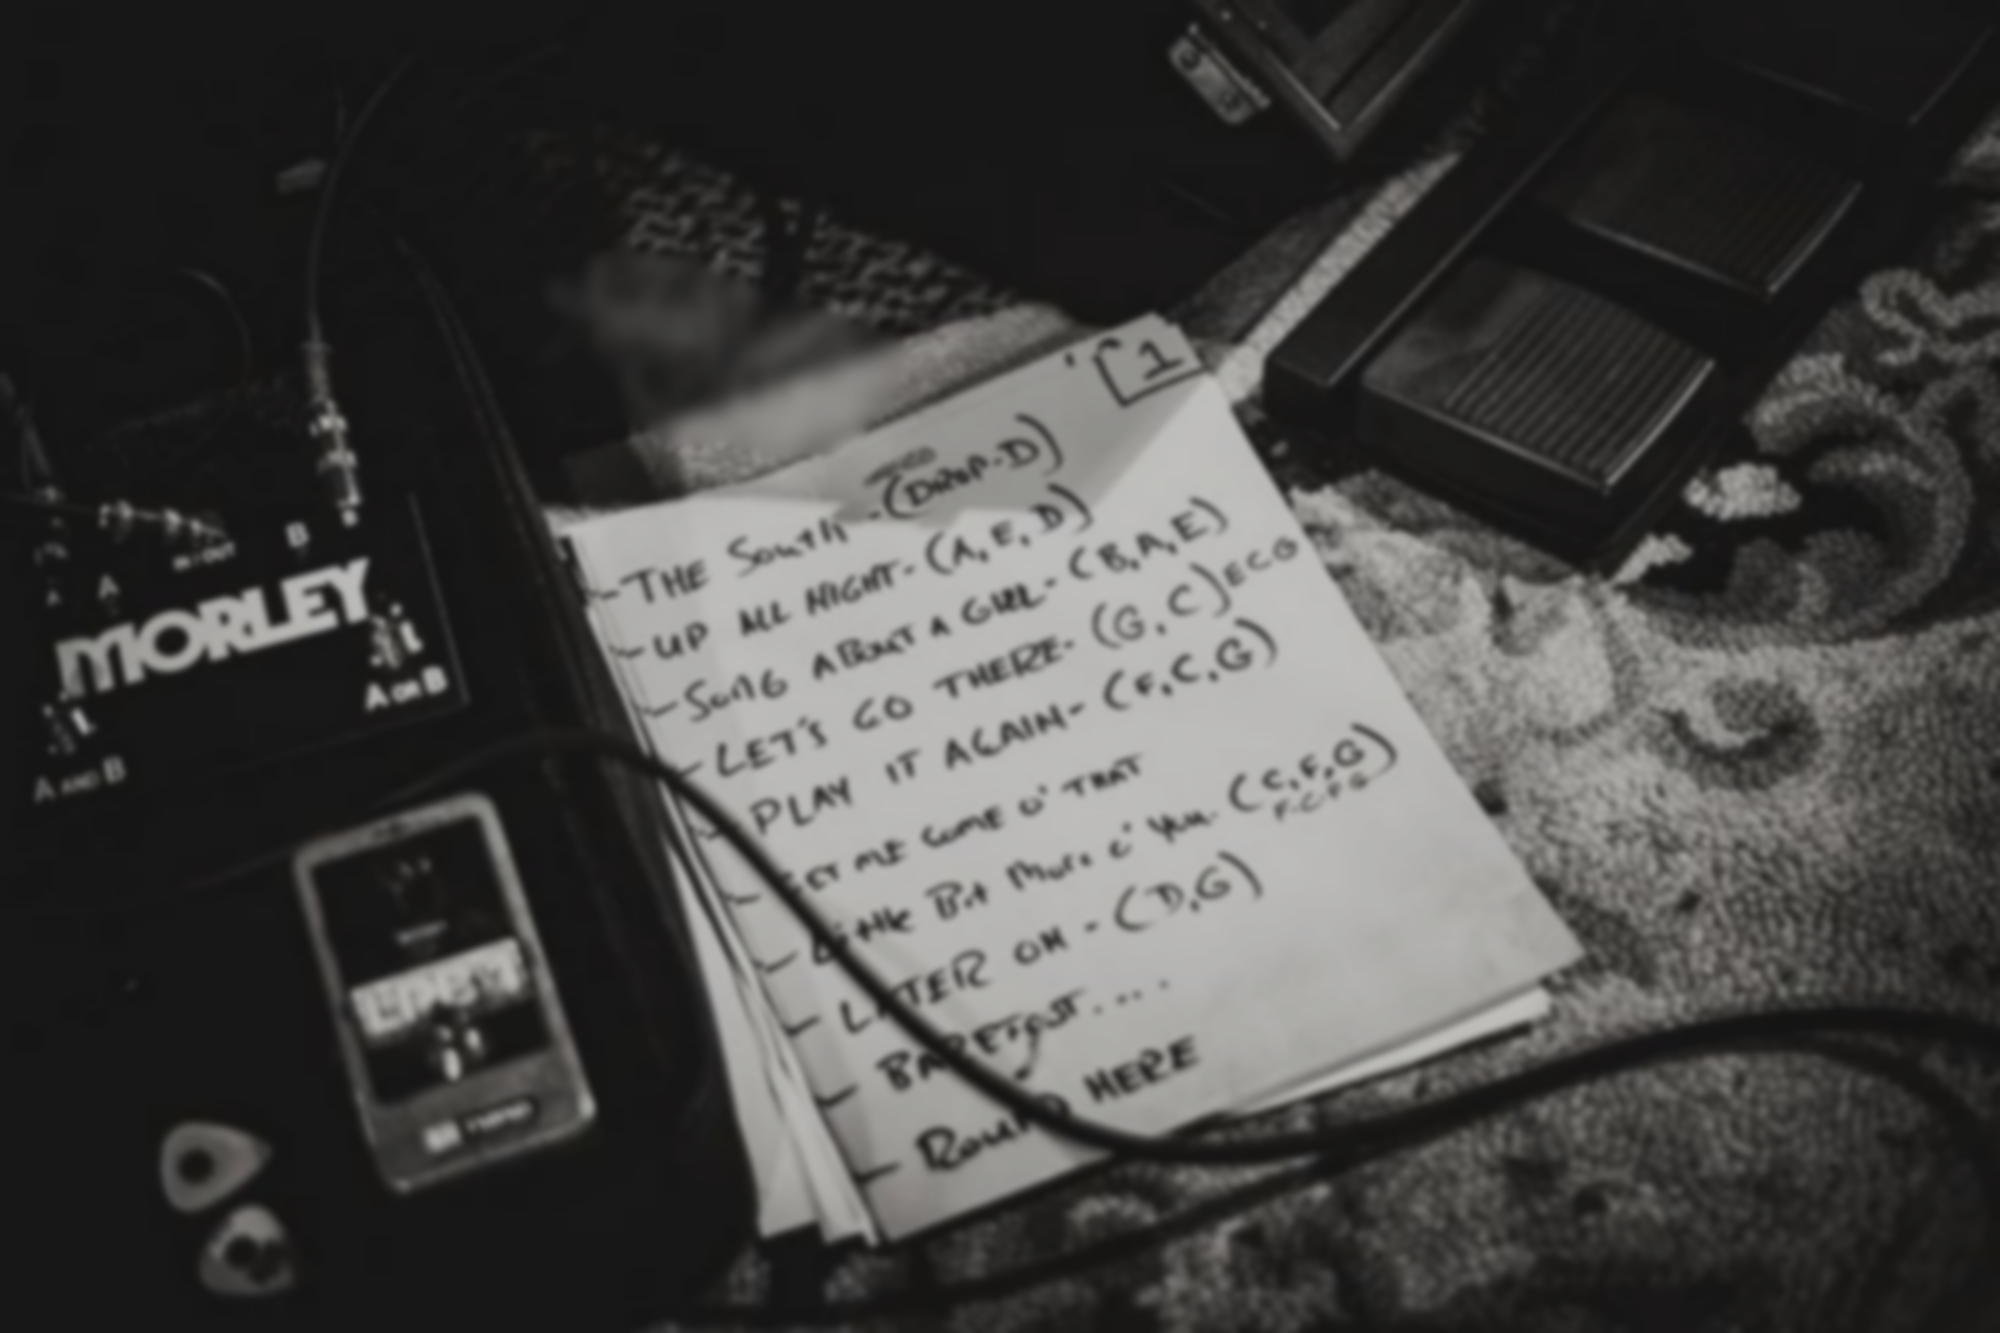 1
- THE South - (DROP-D)
- UP ALL NIGHT - (A, E, D)
- SONG ABOUT A GIRL - (B, A, E)
- LET'S GO THERE - (G, C) E C G
- PLAY IT AGAIN - (F, C, G)
- GET ME SOME O' THAT
- Little Bit More O' You - (C, F, G)
F C F G
- LATER ON - (D, G)
- BAREFOOT....
- ROUND HERE
B
A
MORLEY
A OR B
A AND B
nano